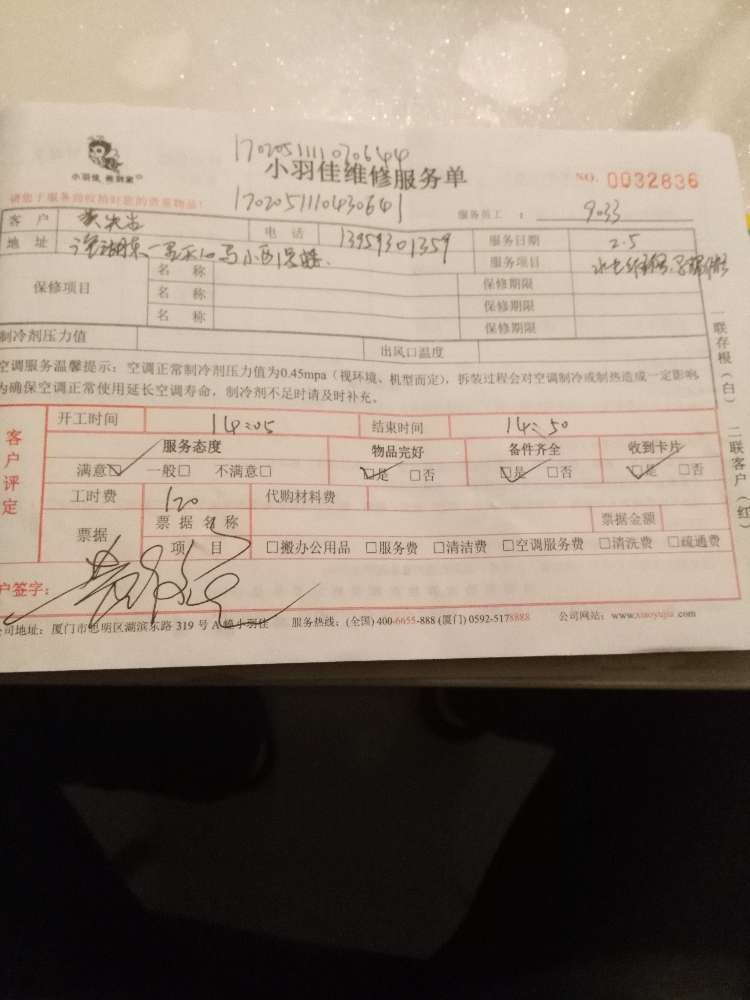 170205111070644
小羽佳 搬到家
小羽佳维修服务单
NO. 0032836
170205110430641
服务员工 : 9033
客户
电话 13959301359 服务日期 2.5
地址
服务项目
保修项目 名称 保修期限
名称 保修期限
名称 保修期限
制冷剂压力值 出风口温度
空调服务温馨提示:空调正常制冷剂压力值为0.45mpa(视环境、机型而定),拆装过程会对空调制冷或制热造成一定影响,
为确保空调正常使用延长空调寿命,制冷剂不足时请及时补充。
一联存根(白) 二联客户(红)
客户评定
开工时间 14:05 结束时间 14:50
服务态度 物品完好 备件齐全 收到卡片
满意☑ 一般□ 不满意□ ☑是 □否 ☑是 □否 ☑是 □否
工时费 120 代购材料费
票据 票据名称 票据金额
项目 □搬办公用品 □服务费 □清洁费 □空调服务费 □清洗费 □疏通费
户签字:
公司地址:厦门市思明区湖滨东路 319 号 A 幢小羽佳 服务热线:(全国) 400-6655-888 (厦门) 0592-5178888 公司网站:www.xiaoyujia.com